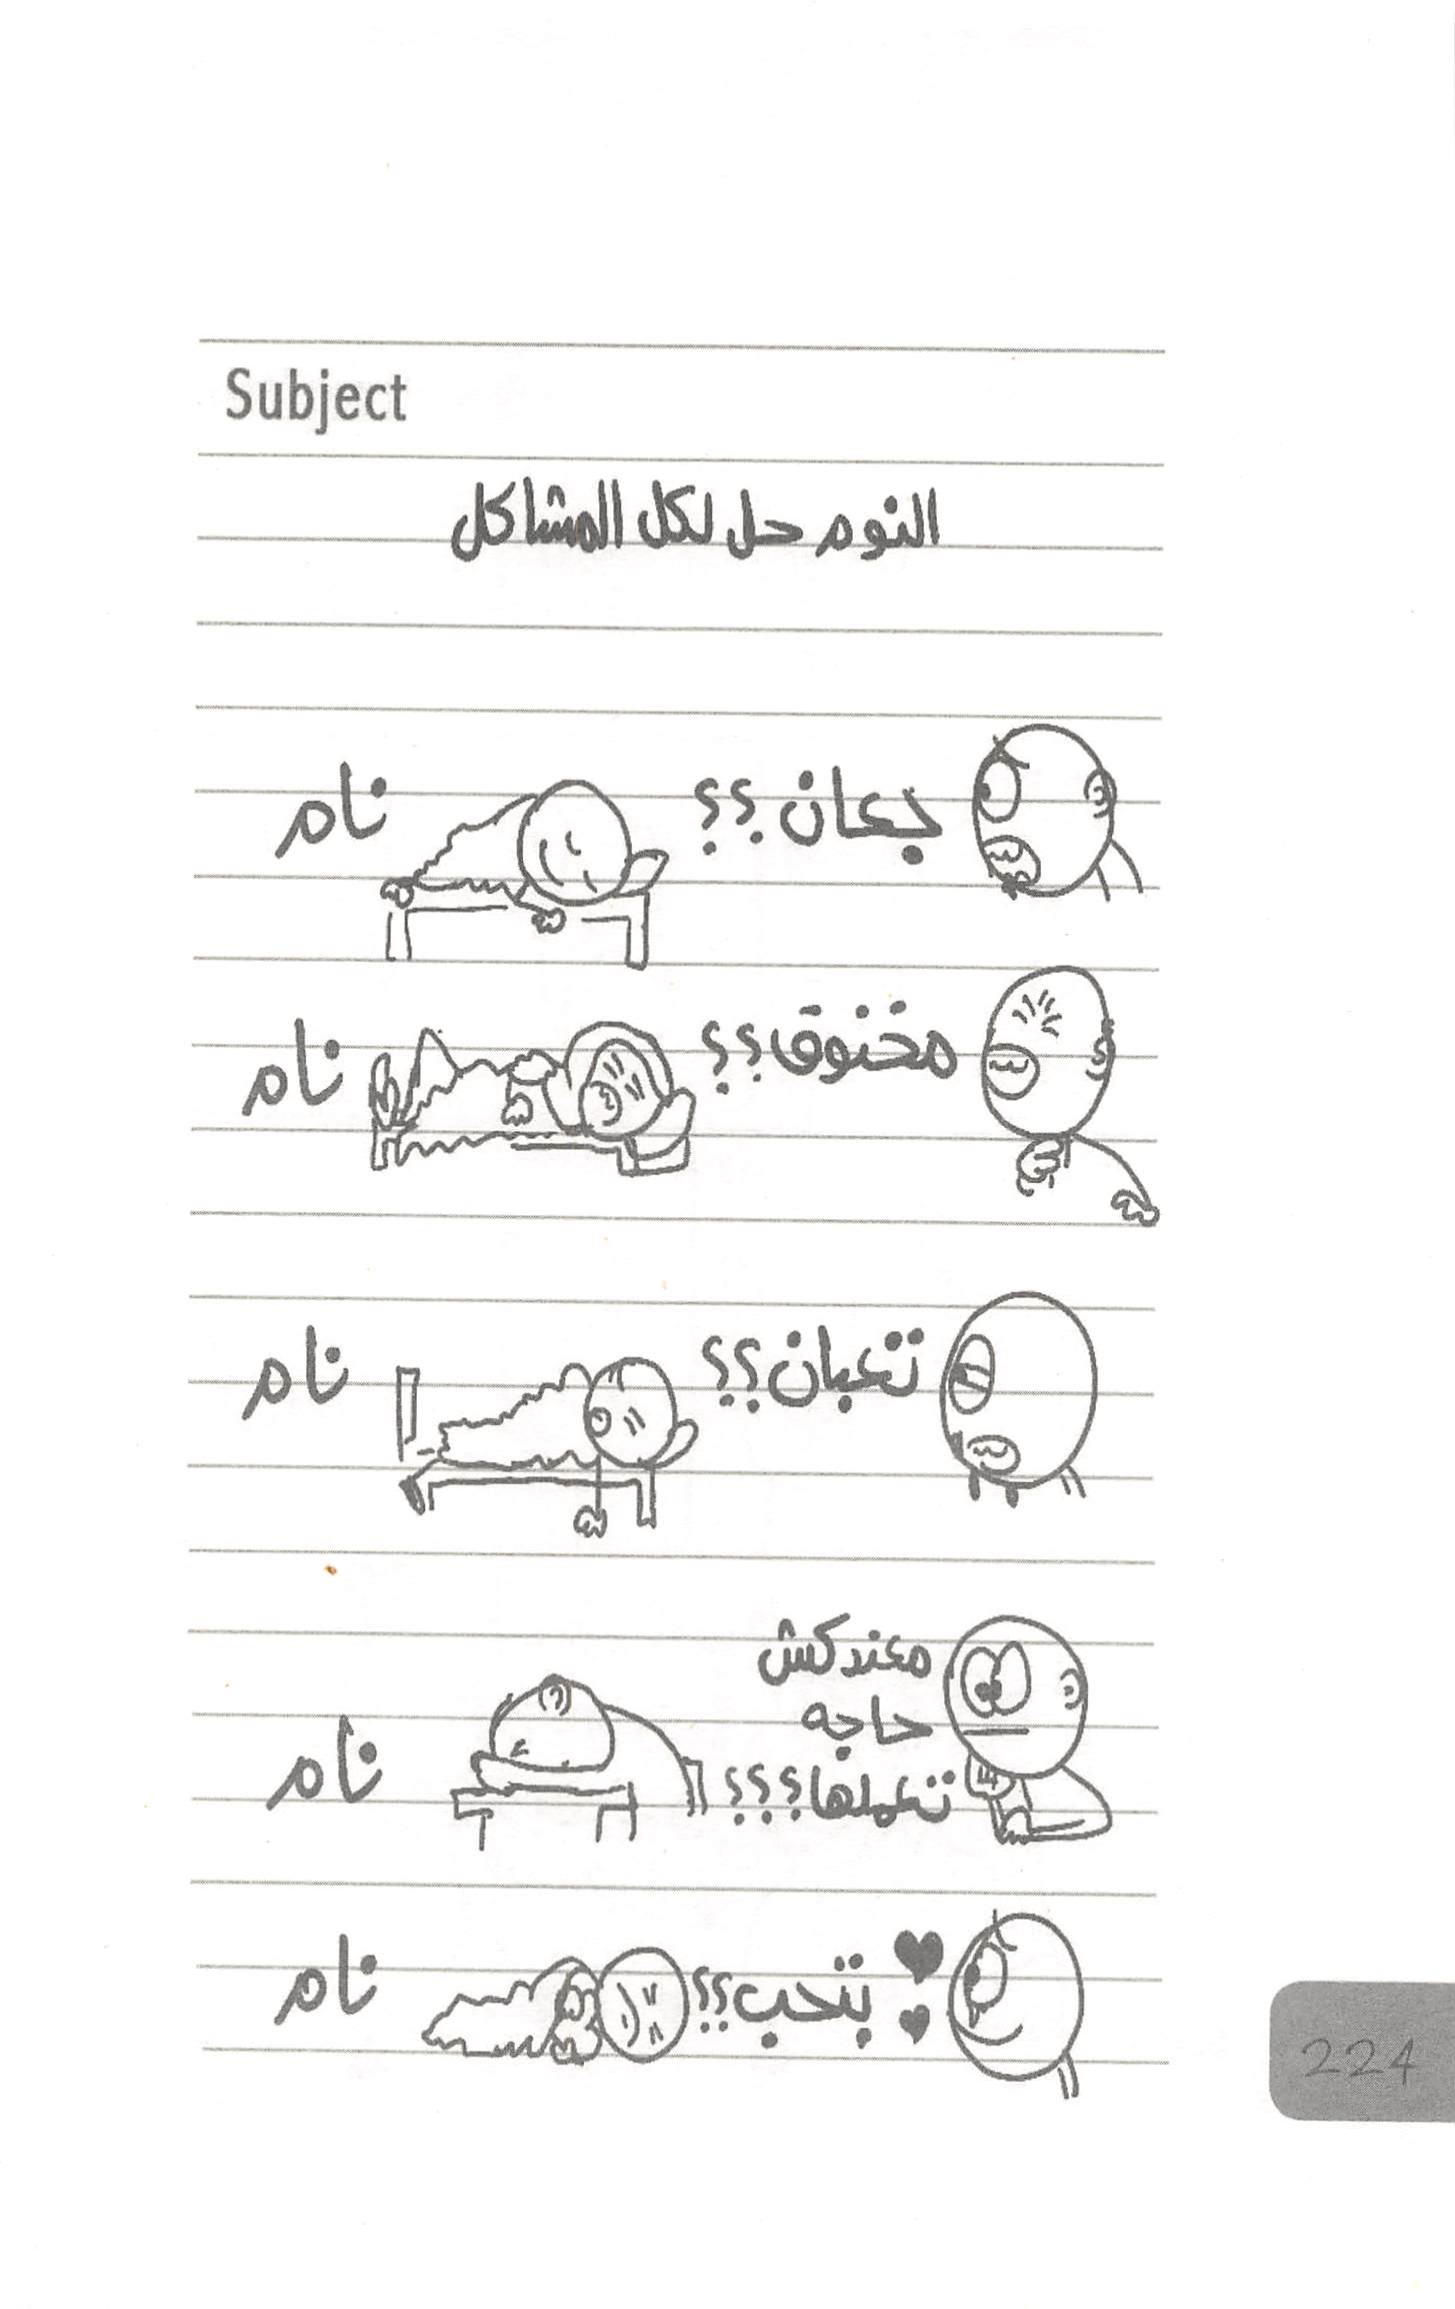 Subject
النوم حل لكل المشاكل
جعان ؟؟
نام
مخنوق ؟؟
نام
تعبان ؟؟
نام
معندكش
حاجه
تعملها ؟؟؟
نام
بتحب ؟؟
نام
224